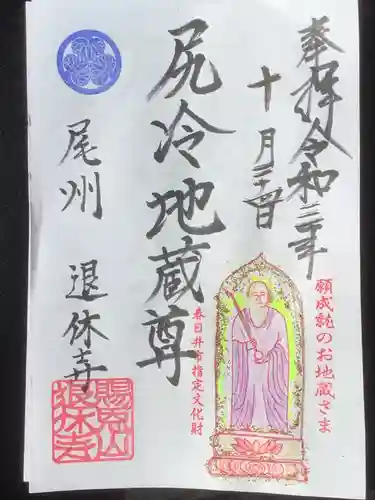 奉拝 令和三年
十月二十四日
尻冷地蔵尊
願成就のお地蔵さま
春日井市指定文化財
尾州 退休寺
賜恩山
退休寺